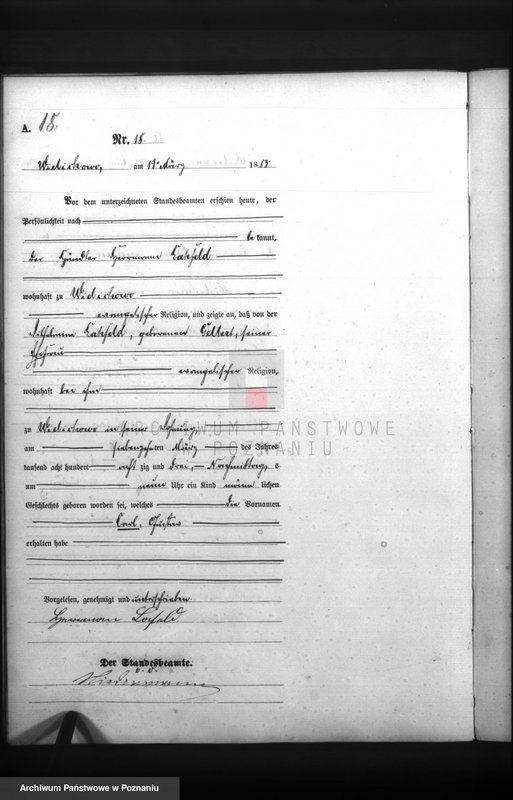 A. 18.
Nr. 18.
am 19. März 1883
Vor dem unterzeichneten Standesbeamten erschien heute, der
Persönlichkeit nach
be kannt,
der Händler Herrmann
wohnhaft zu
evangelischer Religion, und zeigte an, daß von der
geborenen Gellert, seiner
Ehefrau
evangelischer Religion,
wohnhaft bei ihm
ARCHIWUM PAŃSTWOWE
W POZNANIU
zu in seiner Wohnung
am siebenzehnten März des Jahres
tausend acht hundert acht zig und drei, Nachmittag s
um neun Uhr ein Kind männ lichen
Geschlechts geboren worden sei, welches die Vornamen
Carl, Gustav
erhalten habe
Vorgelesen, genehmigt und unterschrieben
Herrmann
Der Standesbeamte.
Archiwum Państwowe w Poznaniu